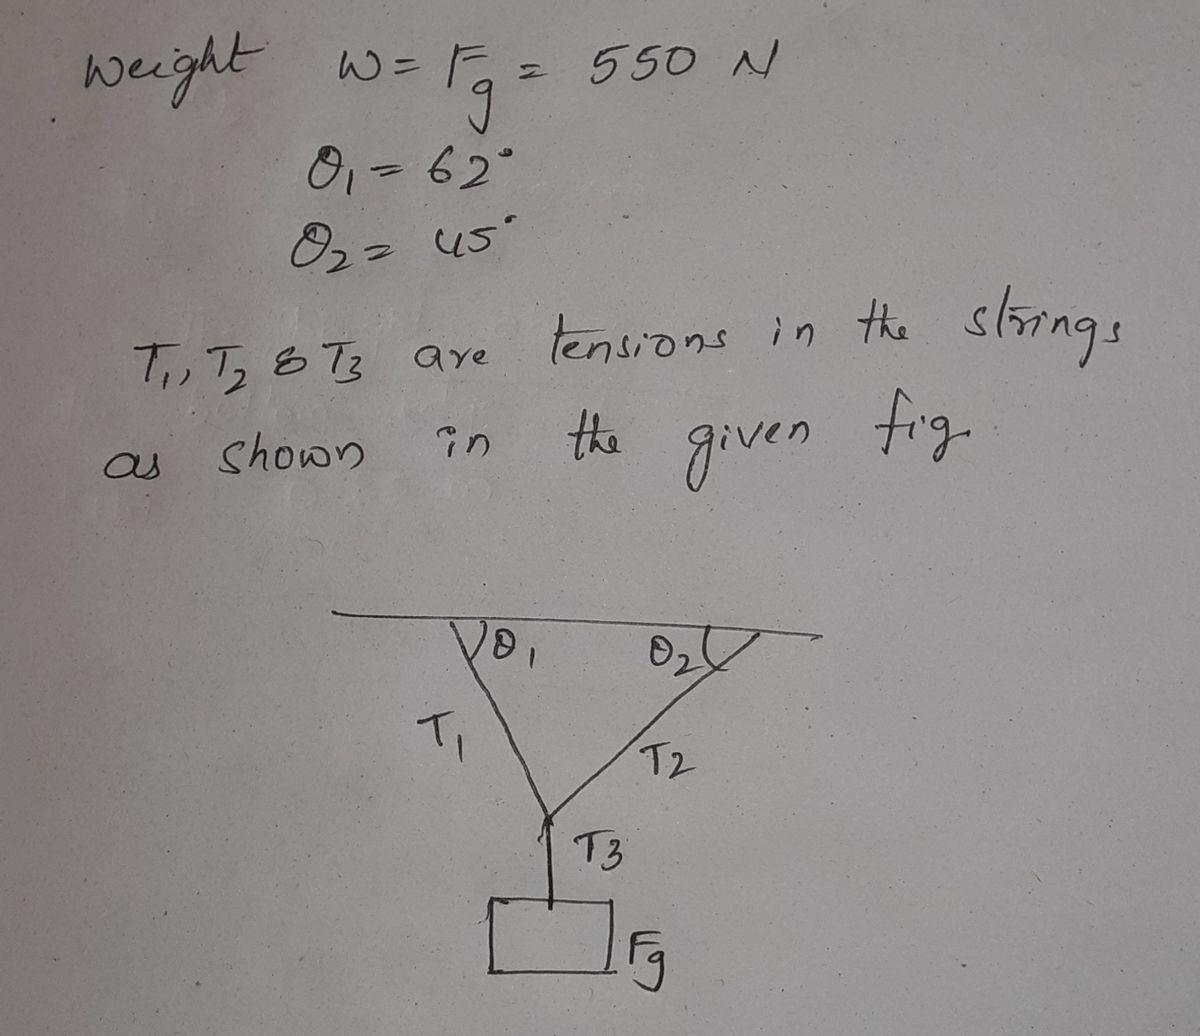 Weight W = Fg = 550 N
θ₁ = 62°
θ₂ = 45°
T₁, T₂ & T₃ are tensions in the strings
as shown in the given fig.
θ₁ θ₂
T₁
T₂
T₃
Fg